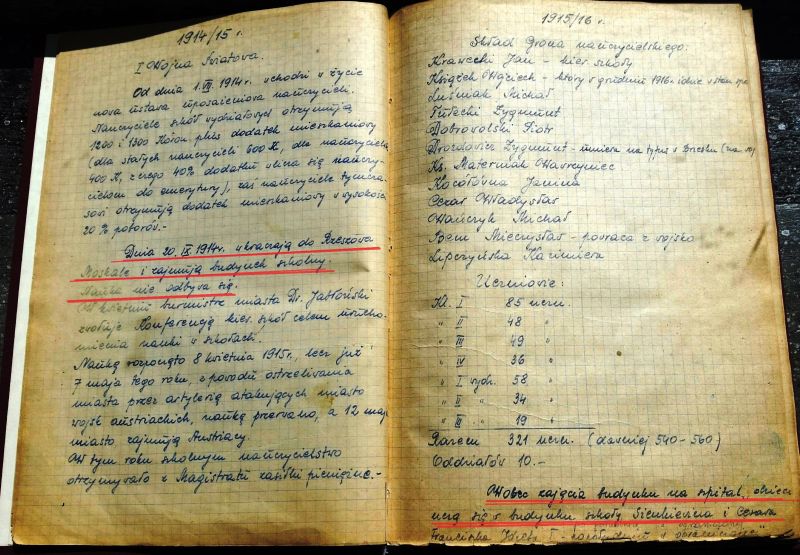 1914/15 r.
I Wojna Światowa.
Od dnia 1.VII 1914r. wchodzi w życie
nowa ustawa uposażeniowa nauczycieli.
Nauczyciele szkół wydziałowych otrzymują
1200 i 1300 Koron plus dodatek mieszkaniowy
(dla stałych nauczycieli 600 K, dla nauczyciela
400 K, z czego 40% dodatku wlicza się nauczy-
cielom do emerytury), zaś nauczyciele tymcza-
sowi otrzymują dodatek mieszkaniowy w wysokości
20% poborów.-
Dnia 20.IX 1914r. wkraczają do Rzeszowa
Moskale i zajmują budynek szkolny.
Nauka nie odbywa się.
W kwietniu burmistrz miasta Dr. Jabłoński
zwołuje Konferencję kier. szkół celem urucho-
mienia nauki w szkołach.
Naukę rozpoczęto 8 kwietnia 1915r., lecz już
7 maja tego roku, z powodu ostrzeliwania
miasta przez artylerię atakujących miasto
wojsk austriackich, naukę przerwano, a 12 maja
miasto zajmują Austriacy.
W tym roku szkolnym nauczycielstwo
otrzymywało z Magistratu zasiłki pieniężne.-
1915/16 r.
Skład Grona nauczycielskiego:
Krawecki Jan - kier. szkoły
Książek Wojciech - który w grudniu 1916r. idzie w stan spo
Luśniak Michał
Tułecki Zygmunt
Dobrowolski Piotr
Drozdowicz Zygmunt - umiera na tyfus w Brzesku (na woj)
Ks. Materniak Wawrzyniec
Kocółówna Janina
Cezar Władysław
Wańczyk Michał
Boem Mieczysław - powraca z wojska
Lipczyńska Kazimiera
Uczniowie:
Kl. I 85 uczn.
" II 48 "
" III 49 "
" IV 36 "
" I wydz. 58 "
" II " 34 "
" III " 19 "
Razem 321 uczn. (dawniej 540-560)
Oddziałów 10.-
Wobec zajęcia budynku na szpital, dzieci
uczą się w budynku szkoły Sienkiewicza i Cesarza
Franciszka Józefa I -